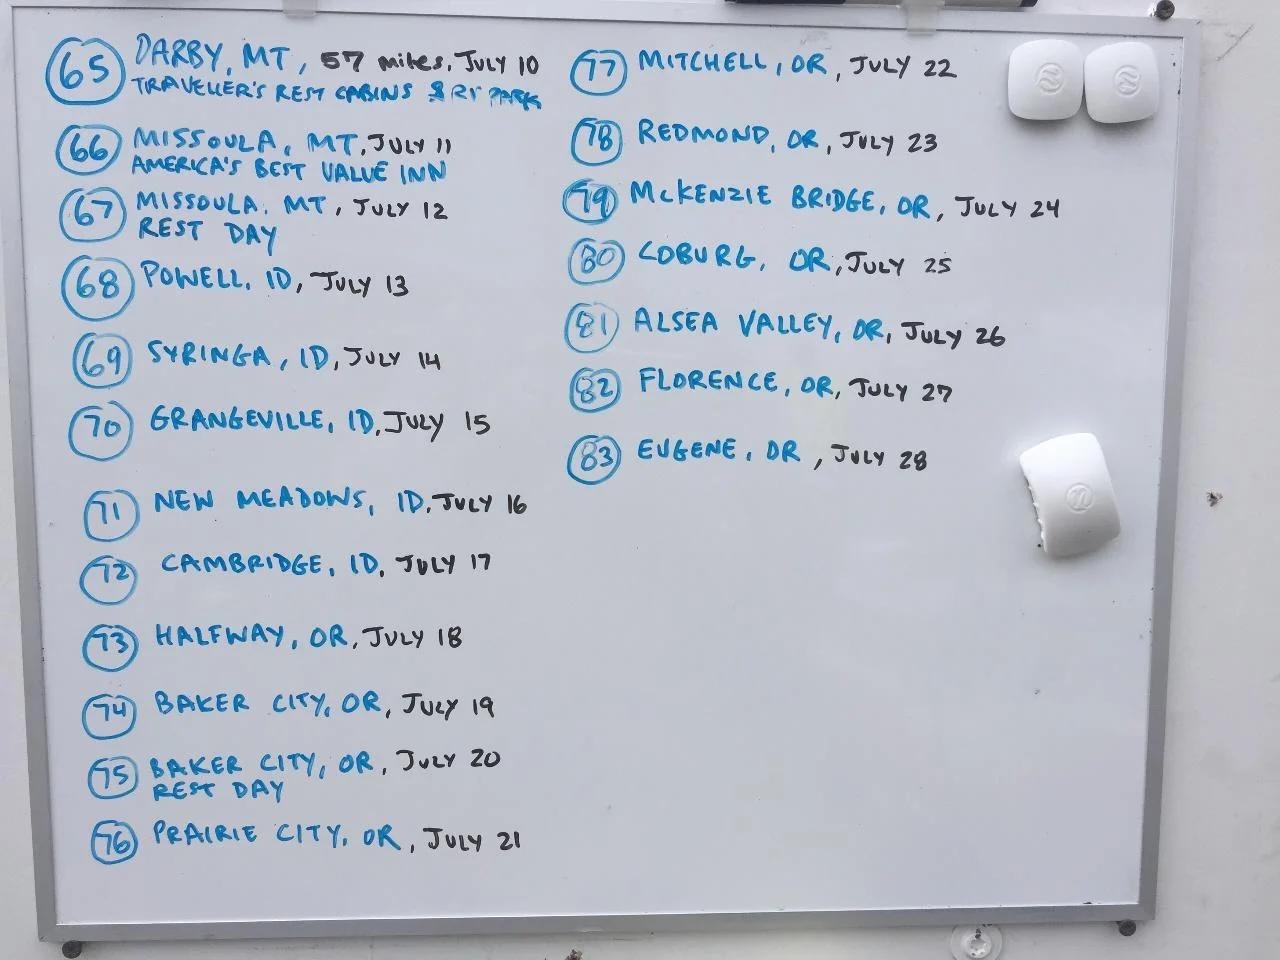 65 DARBY, MT, 57 miles, JULY 10
TRAVELLER'S REST CABINS & RV PARK
66 MISSOULA, MT, JULY 11
AMERICA'S BEST VALUE INN
67 MISSOULA, MT, JULY 12
REST DAY
68 POWELL, ID, JULY 13
69 SYRINGA, ID, JULY 14
70 GRANGEVILLE, ID, JULY 15
71 NEW MEADOWS, ID, JULY 16
72 CAMBRIDGE, ID, JULY 17
73 HALFWAY, OR, JULY 18
74 BAKER CITY, OR, JULY 19
75 BAKER CITY, OR, JULY 20
REST DAY
76 PRAIRIE CITY, OR, JULY 21
77 MITCHELL, OR, JULY 22
78 REDMOND, OR, JULY 23
79 McKENZIE BRIDGE, OR, JULY 24
80 COBURG, OR, JULY 25
81 ALSEA VALLEY, OR, JULY 26
82 FLORENCE, OR, JULY 27
83 EUGENE, OR, JULY 28